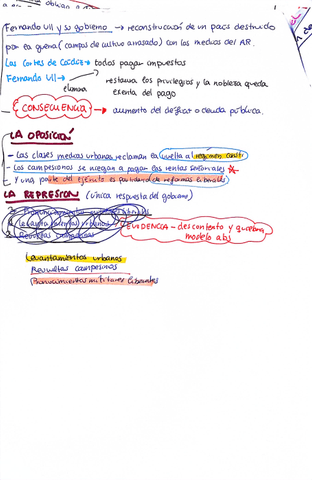 Fernando VII y su gobierno → reconstrucción de un país destruido
por la guerra (campos de cultivo arrasado) con los medios del AR.
Las Cortes de Cádiz → todos pagar impuestos
Fernando VII → restaura los privilegios y la nobleza queda
elimina exenta del pago
CONSECUENCIA → aumento del déficit o deuda pública.
LA OPOSICIÓN
- Las clases medias urbanas reclaman la vuelta al régimen const.
Los campesinos se niegan a pagar las rentas señoriales *
Y una parte del ejército es partidaria de reformas liberales
LA REPRESIÓN (única respuesta del gobierno)
EVIDENCIA - descontento y quiebra
modelo abs
Levantamientos urbanos
Revueltas campesinas
Pronunciamientos militares liberales